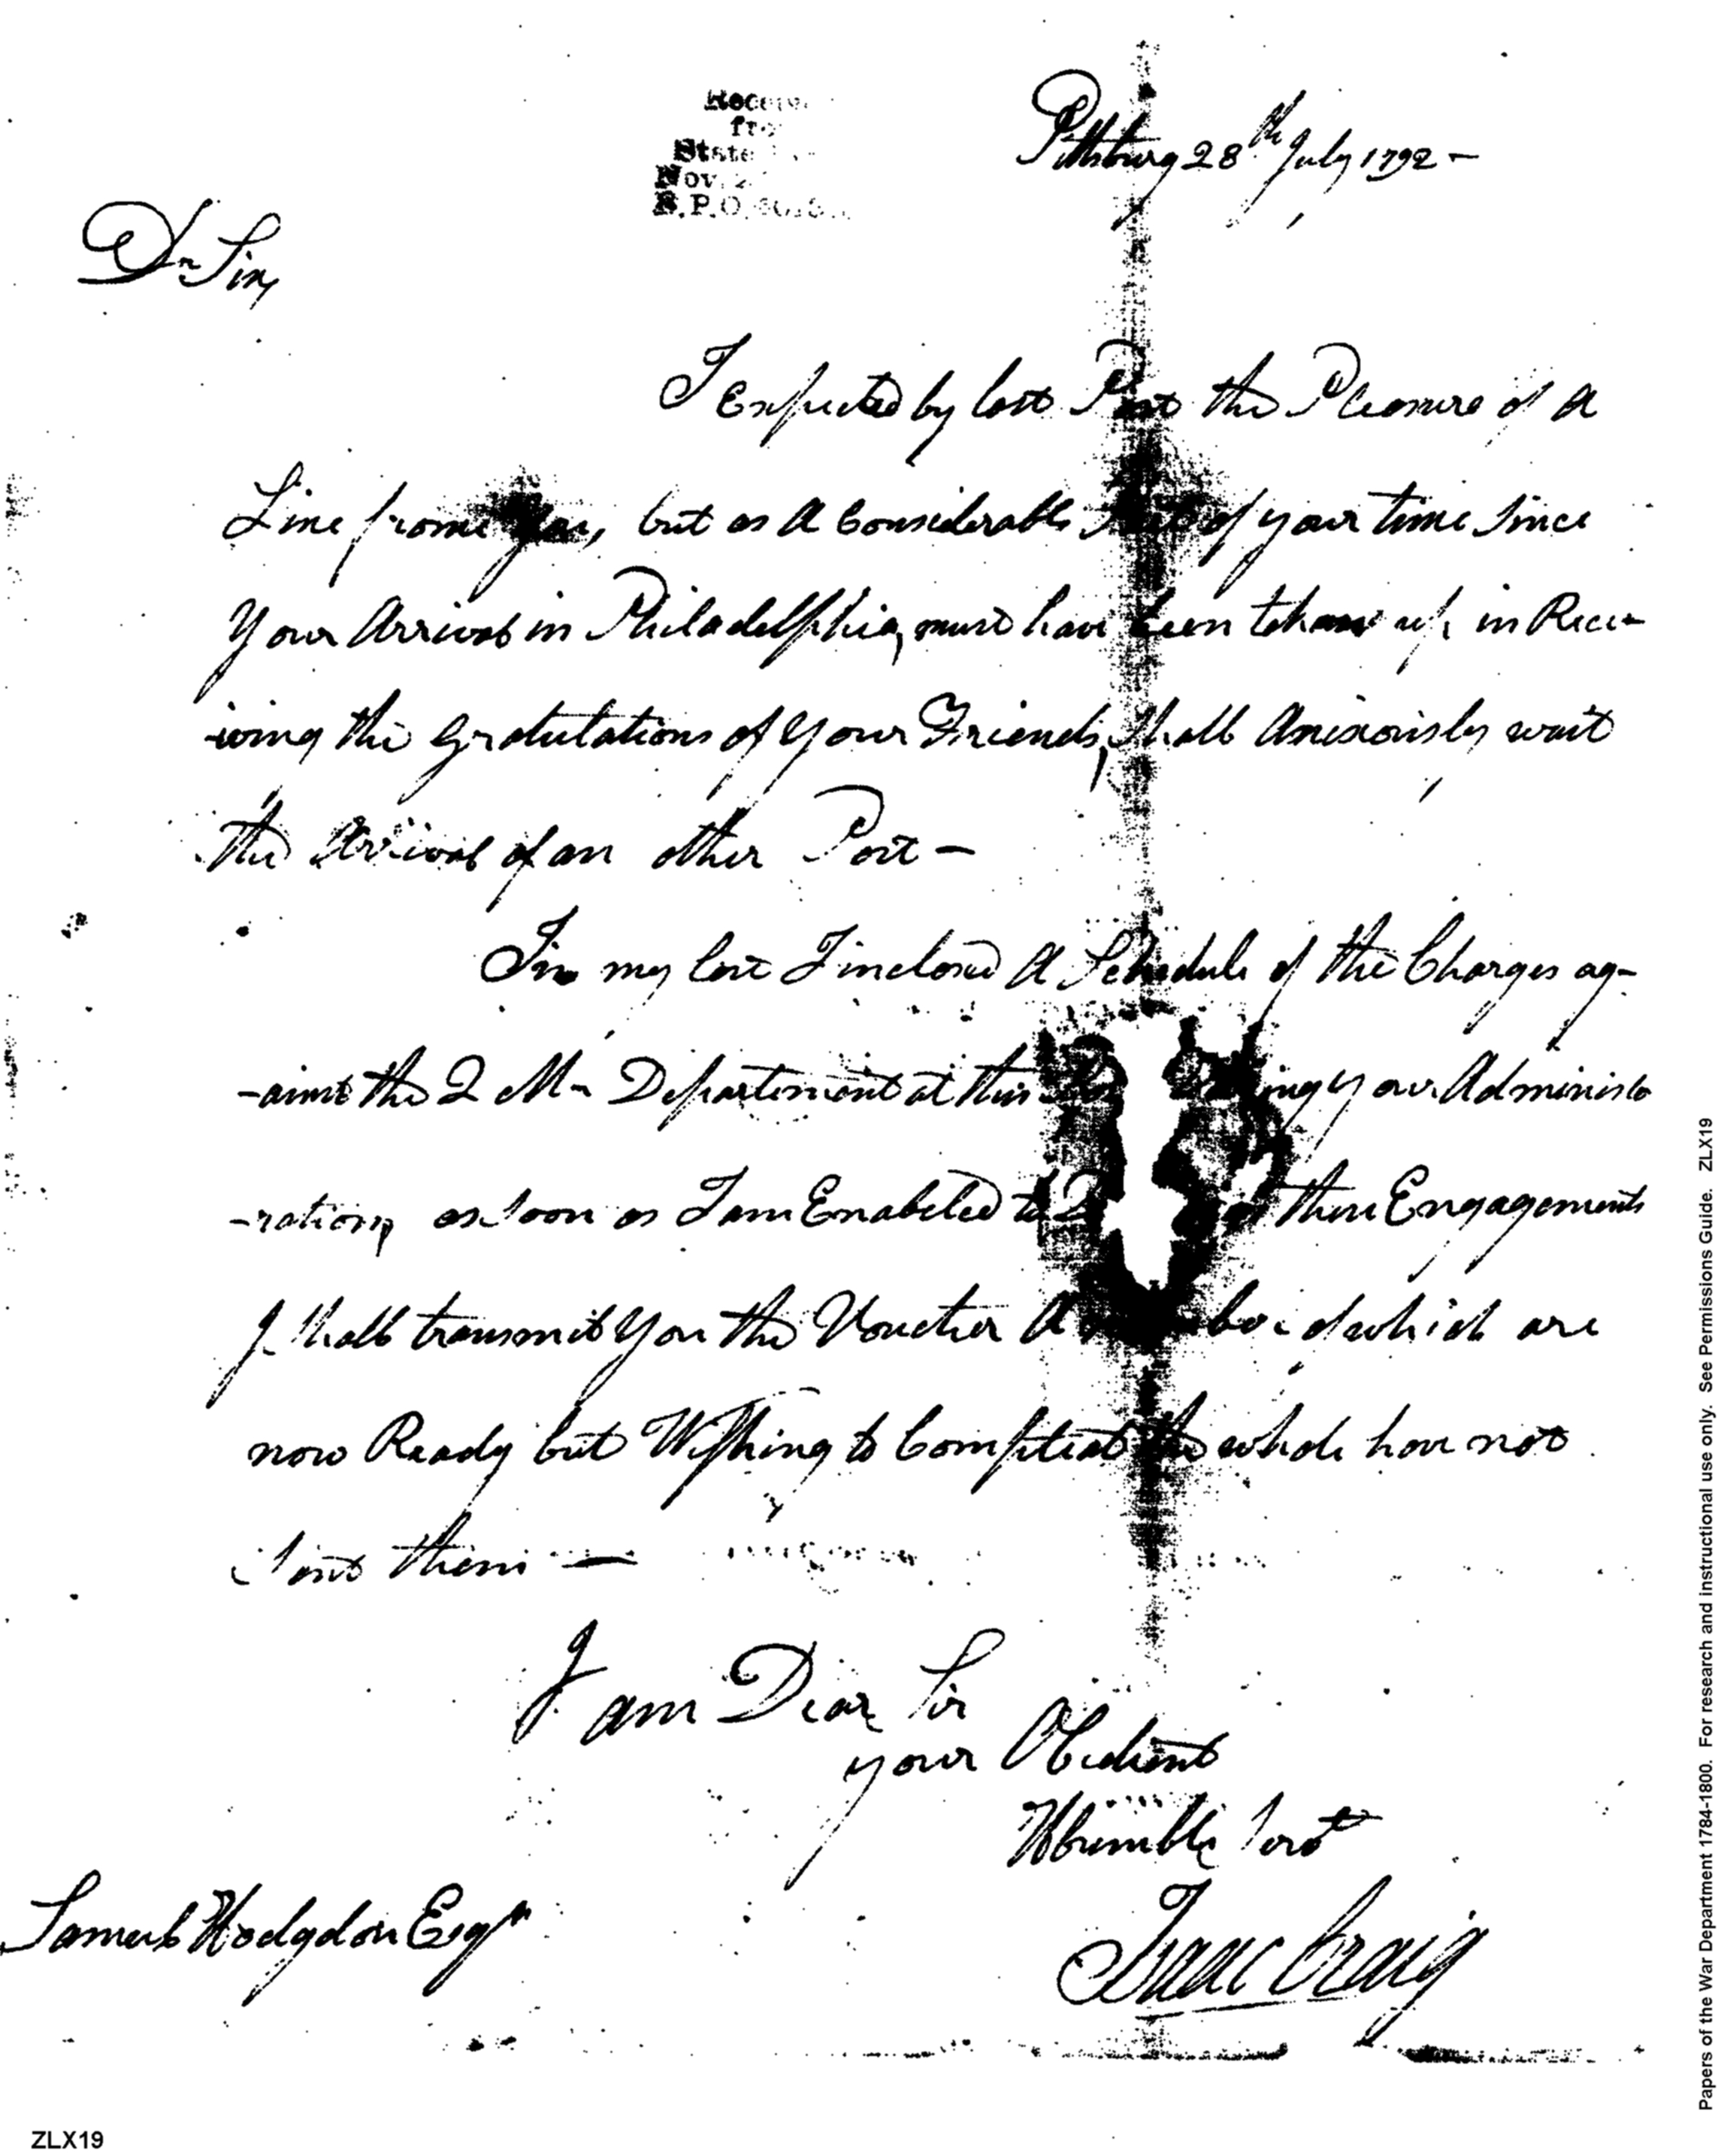 Pittsburg 28th July 1792 -
Dr Sir,
I Expected by last Post the Pleasure of A
Line from You, but as A Considerable Part of your time Since
Your Arrival in Philadelphia, must have been taken up in Rece-
-iving the Gratulations of Your Friends, Shall Anxiously wait
the Arrival of an other Post -
In my last I inclosed A Schedule of the Charges ag-
-ainst the Q M Department at this your Administ
-ration, as soon as I am Enabeled to these Engagements
I Shall transmit You the Voucher A of which are
now Ready but Wishing to Compleat the whole have not
Sent them —
I am Dear Sir
your Obedient
Humble Servt
Isaac Craig
Samuel Hodgdon Esqr
State
Nov. 2
Papers of the War Department 1784-1800. For research and instructional use only. See Permissions Guide. ZLX19
ZLX19